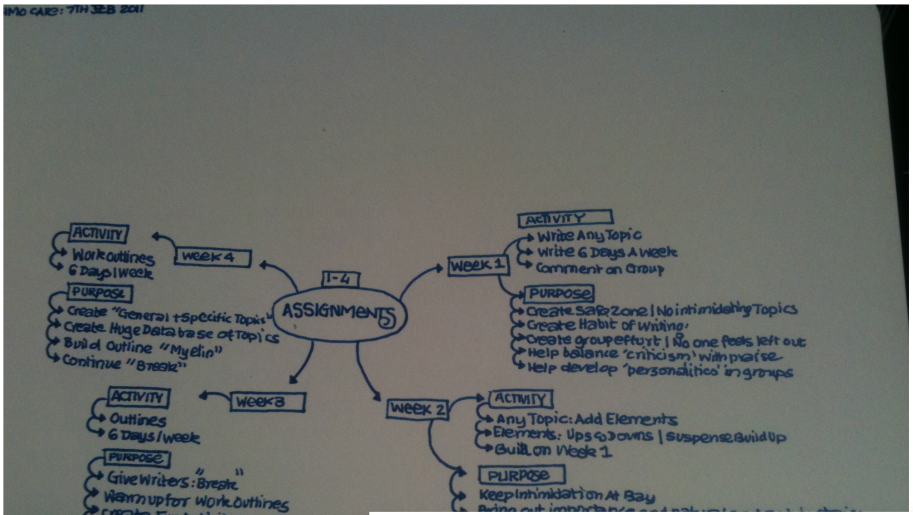 CARE: 7TH FEB 2011
1-4
ASSIGNMENTS
Week 1
ACTIVITY
Write Any Topic
Write 6 Days A Week
Comment on Group
PURPOSE
Create Safe Zone | No intimidating Topics
Create Habit of Writing
Create group effort | No one feels left out
Help balance 'criticism' with praise
Help develop 'personalities' in groups
Week 2
ACTIVITY
Any Topic: Add Elements
Elements: Ups & Downs | Suspense Build Up
Built on Week 1
PURPOSE
Keep Intimidation At Bay
Bring out importance and
Week 3
ACTIVITY
Outlines
6 Days/week
PURPOSE
Give Writers: "Break"
Warm up for Work Outlines
Create
Week 4
ACTIVITY
Work outlines
6 Days/week
PURPOSE
Create "General + Specific Topics"
Create Huge Database of Topics
Build Outline "Myelin"
Continue "Break"